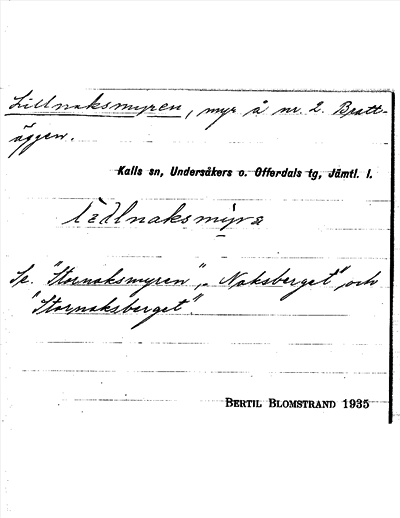 Lillnaksmyren, myr å nr. 2. Bratt-
äggen.
Kalls sn, Undersåkers o. Offerdals tg, Jämtl. l.
Se. "Stornaksmyren", "Naksberget" och
"Stornaksberget".
BERTIL BLOMSTRAND 1935